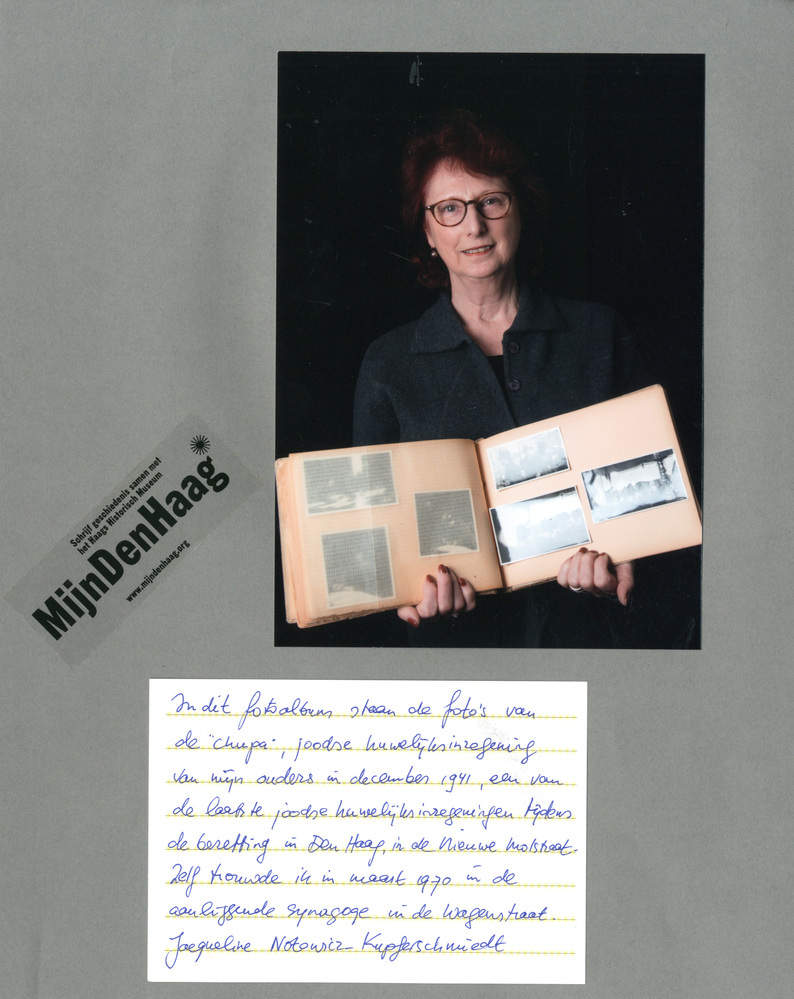 Schrijf geschiedenis samen met
het Haags Historisch Museum
MijnDenHaag
www.mijndenhaag.org
In dit fotoalbum staan de foto's van
de "chupa", joodse huwelijksinzegening
van mijn ouders in december 1941, een van
de laatste joodse huwelijksinzegeningen tijdens
de bezetting in Den Haag, in de Nieuwe Molstraat.
Zelf trouwde ik in maart 1970 in de
aanliggende synagoge in de Wagenstraat.
Jacqueline Notowicz-Kupferschmiedt